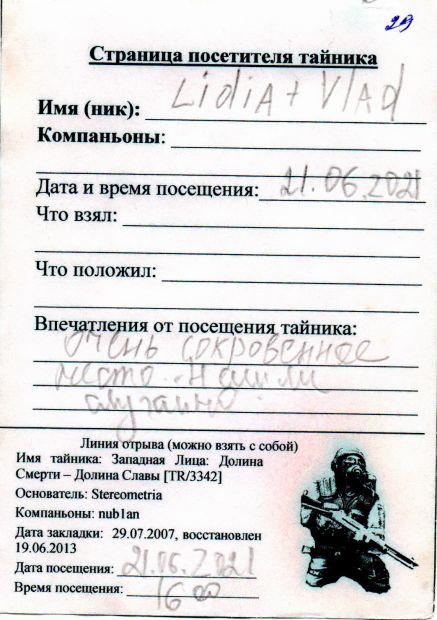 29
Страница посетителя тайника
Имя (ник): LidiA + Vlad
Компаньоны:
Дата и время посещения: 21.06.2021
Что взял:
Что положил:
Впечатления от посещения тайника:
очень сокровенное
место. Нашли
случайно
Линия отрыва (можно взять с собой)
Имя тайника: Западная Лица: Долина
Смерти – Долина Славы [TR/3342]
Основатель: Stereometria
Компаньоны: nub1an
Дата закладки: 29.07.2007, восстановлен
19.06.2013
Дата посещения: 21.06.2021
Время посещения: 16 00